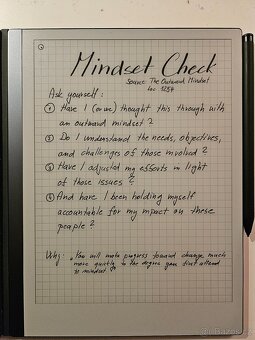 Mindset Check
Source: The Outward Mindset
Loc 3257
Ask yourself:
① Have I (or we) thought this through with
an outward mindset?
② Do I understand the needs, objectives,
and challenges of those involved?
③ Have I adjusted my efforts in light
of those issues?
④ And have I been holding myself
accountable for my impact on these
people?
Why: "You will make progress toward change much
more quickly to the degree you first attend
to mindset."